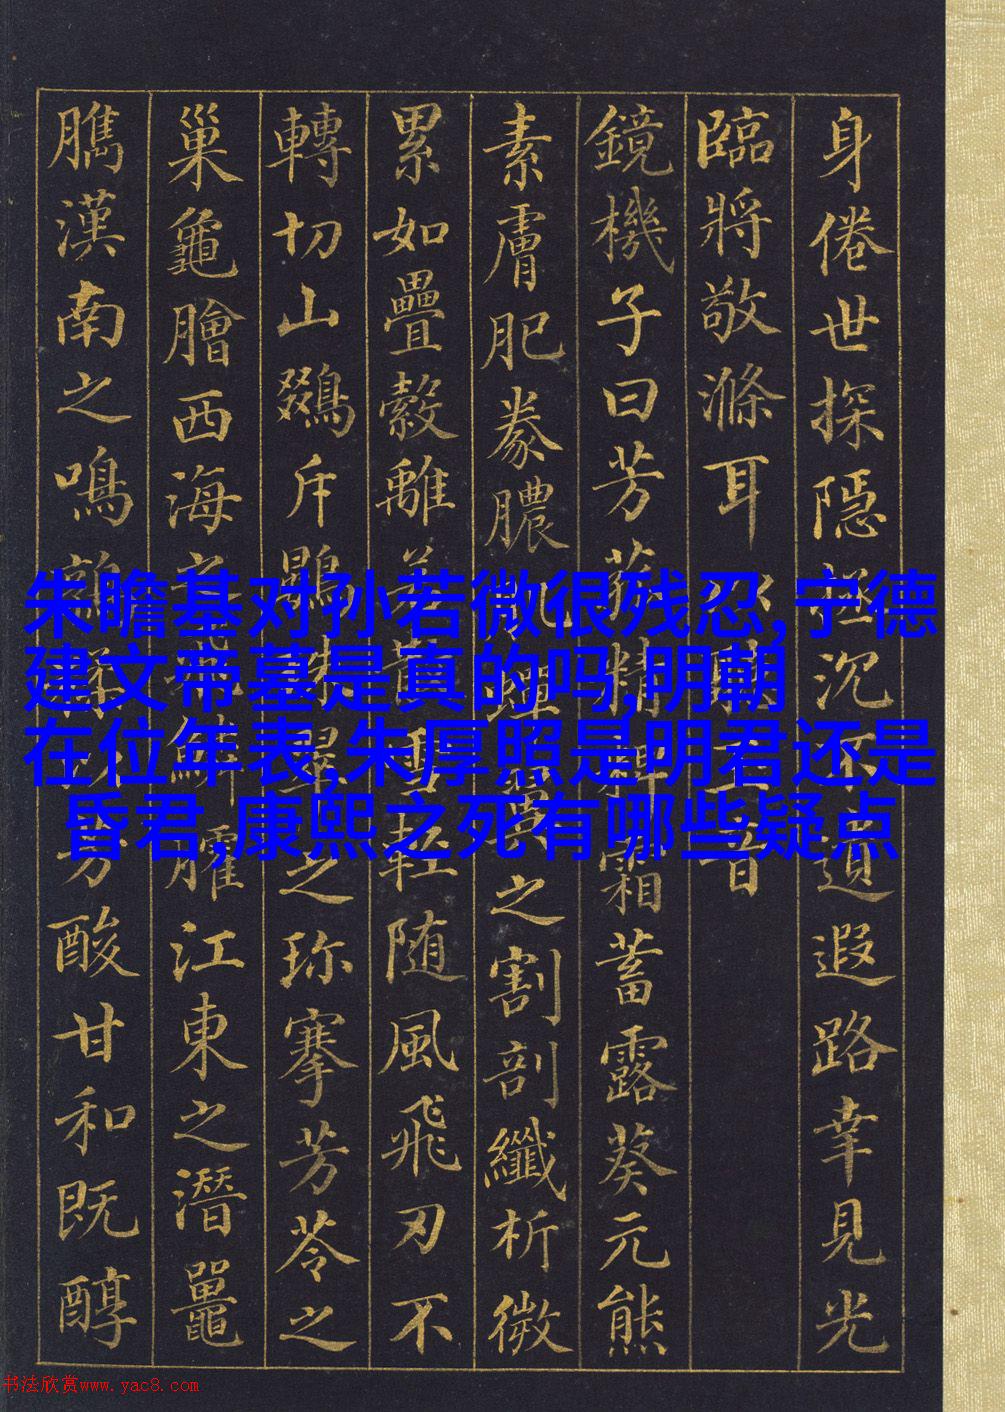 身倦世探隱拯沉不遺遐路幸見光
臨將敬滌耳
鏡機子曰芳菰精粺霜蓄露葵元熊
素膚肥豢膿肌蟬翼之割剖纖析微
累如疊縠離若散雪輕随風飛刃不
轉切山鵽斥鷃珠翠之珎搴芳苓之
巢龜膾西海之飛鱗臛江東之潛鼉
臇漢南之鳴鶉
酸甘和既醇
朱瞻基对孙若微很残忍,宁德
建文帝墓是真的吗,明朝
在位年表,朱厚照是明君还是
昏君,康熙之死有哪些疑点
书法欣赏www.yac8.com